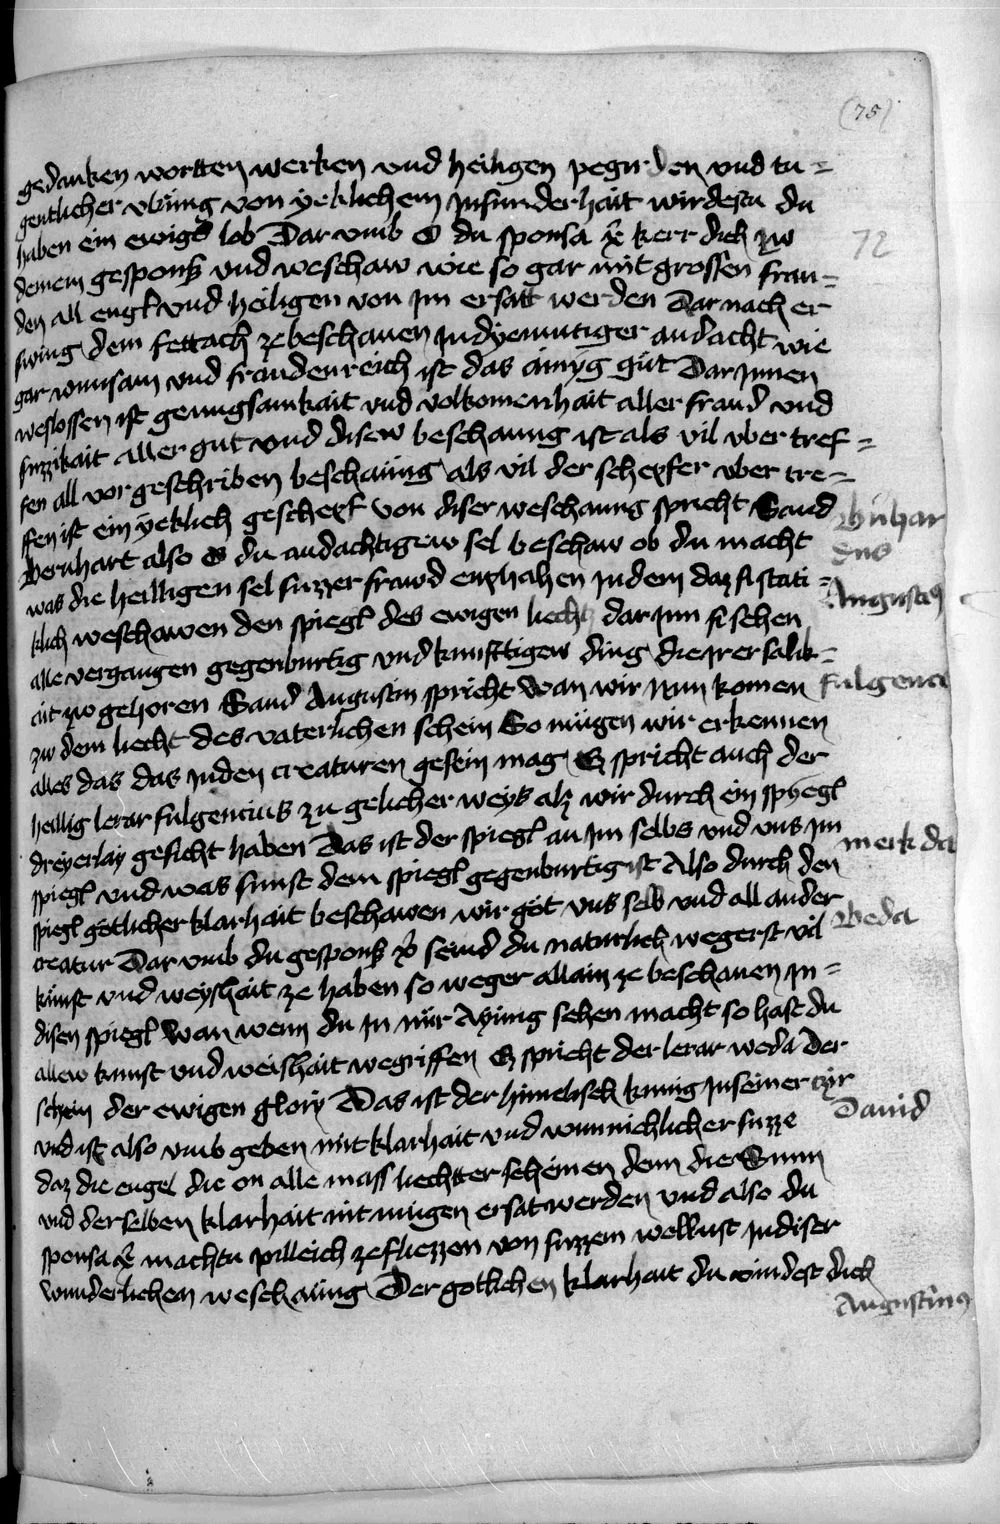 (75)
gedanken wortten werken vnd heiligen pegirden vnd tu=
gentlicher vbung von yeklichem Jnsunderhait wirdestu du
72
haben ein ewigs lob Dar vmb O du sponsa xpi kerr dich zw
deinem gesponß vnd weschaw wie so gar mit grossen frau=
den all engl vnd heiligen von im ersatt werden Dar nach er
swing dem fettach ze beschauen Jn dyemutiger andacht wie
gar wunsam vnd fraudenreich ist das ainyg gut Dar Jnnen
weslossen ist genugsamkait vnd volkomenhait aller fraud vnd
suzzikait aller gut vnd disew beschaung ist als vil vber tref=
fen all vor geschriben beschaung als vil der schepfer vber tre=
ffen ist ein yeklich geschepf von diser weschaung spricht Sand
Bernhart also O du andachtigew sel beschaw ob du macht
Bernhar
dus
was die heilligen sel suzzer frawd enphahen Jn dem daz si stati=
Augustus
klich weschawen den spiegl des ewigen liechtz dar jnn si sehen
alle vergangen gegenburtig vnd kunfftigew ding die irer salik=
ait zw gehoren Sand Augustin spricht wan wir nun komen
fulgenci
zw dem liecht des vaterlichen schein So mugen wir erkennen
alles das das Jn den creaturen gesein mag Es spricht auch der
heillig lerar fulgencius zu gelicher weys alz wir durch ein spyegl
dreyerlay gesicht haben Das ist der spiegl an im selbs vnd vns im
merk da
spiegl vnd was sunst dem spiegl gegenburtig ist Also durch den
spiegl gotlicher klarhait beschawen wir got vns selb vnd all ander
Beda
creatur Dar vmb du gesponß xpi seind du naturlich wegerst vil
kunst vnd weyshait ze haben so weger allain ze beschauen in=
disen spiegl wan wenn du in nur Aynung sehen macht so hast du
allew kunst vnd weishait wegriffen Es spricht der lerar weda Der
schein der ewigen glory Das ist der himelisch kunig Jn seiner czir
Dauid
vnd ist also vmb geben mit klarhait vnd wunnichlicher suzze
daz die engel die on alle mass liechtter scheinen denn die Sunn
vnd derselben klarhait nit mugen ersat werden vnd also du
sponsa xpi machtu pilleich zefliezzen von suzzem wollust Jn diser
wunderlichem weschaung Der gotlichen klarhait du windest dich
Augustinus